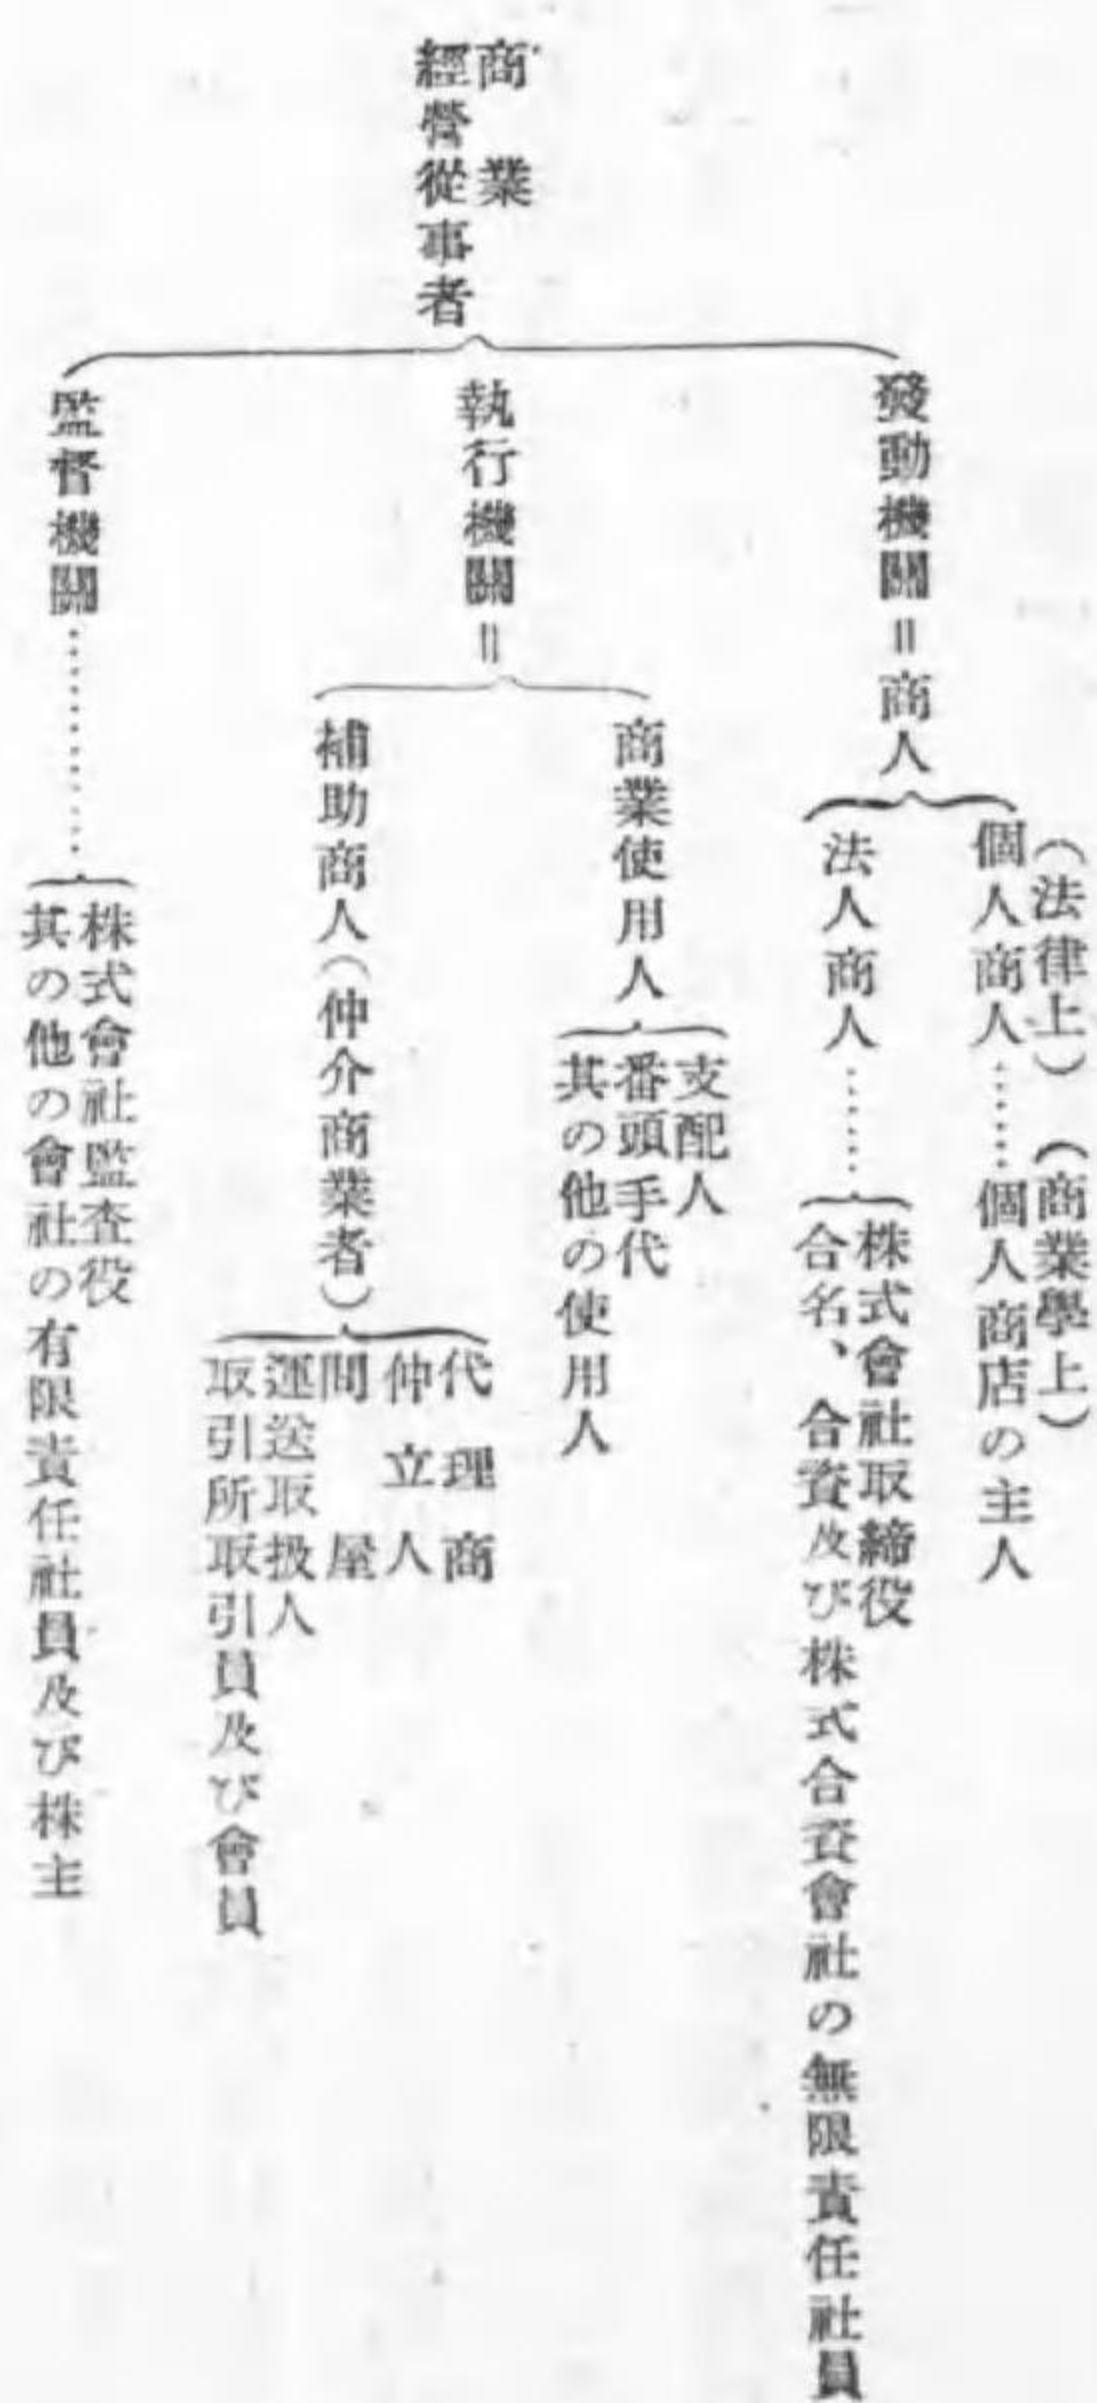 商業
經營從事者
發動機關＝商人
(法律上) (商業學上)
個人商人……個人商店の主人
法人商人……
株式會社取締役
合名、合資及び株式合資會社の無限責任社員
執行機關＝
商業使用人
支配人
番頭手代
其の他の使用人
補助商人(仲介商業者)
代理商
仲立人
問屋
運送取扱人
取引所取引員及び會員
監督機關…………
株式會社監査役
其の他の會社の有限責任社員及び株主